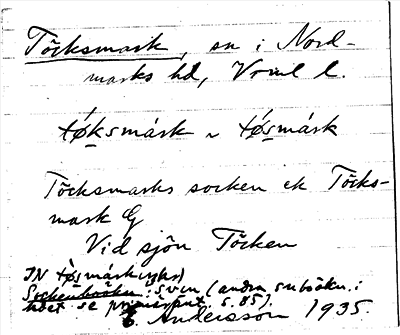 Töcksmark, sn i Nord-
marks hd, Vrml l.
tǿksmárk ~ tǿsmárk
Töcksmarks socken ek Töcks-
mark G
Vid sjön Töcken
IN tǿsmárk
Sockenboken: Sven (andra snböcker i
hdet se primärpnt. s. 85).
E. Andersson 1935.